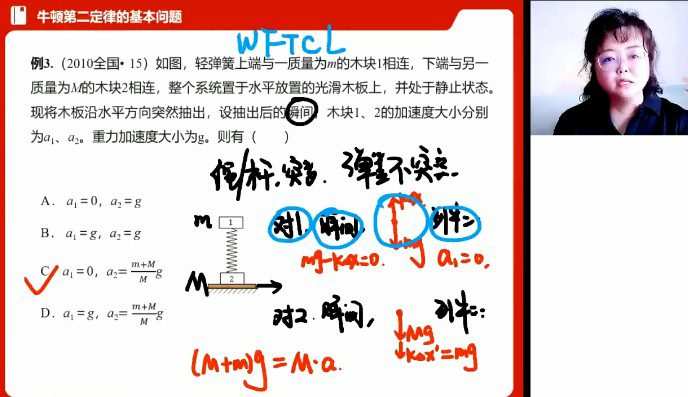 牛顿第二定律的基本问题
WFTCL
例3.（2010全国•15）如图，轻弹簧上端与一质量为m的木块1相连，下端与另一
质量为M的木块2相连，整个系统置于水平放置的光滑木板上，并处于静止状态。
现将木板沿水平方向突然抽出，设抽出后的瞬间，木块1、2的加速度大小分别
为a₁、a₂。重力加速度大小为g。则有（　　）
绳/杆，突变．弹簧不突变．
A. a₁=0，a₂=g
B. a₁=g，a₂=g
C. a₁=0，a₂=\frac{m+M}{M}g
D. a₁=g，a₂=\frac{m+M}{M}g
m 1
M 2
对1，瞬间， 列牛二：
mg
mg-kΔx=0. a₁=0,
对2．瞬间， 列牛二：
Mg
kΔx'=mg
(M+m)g=M·a.